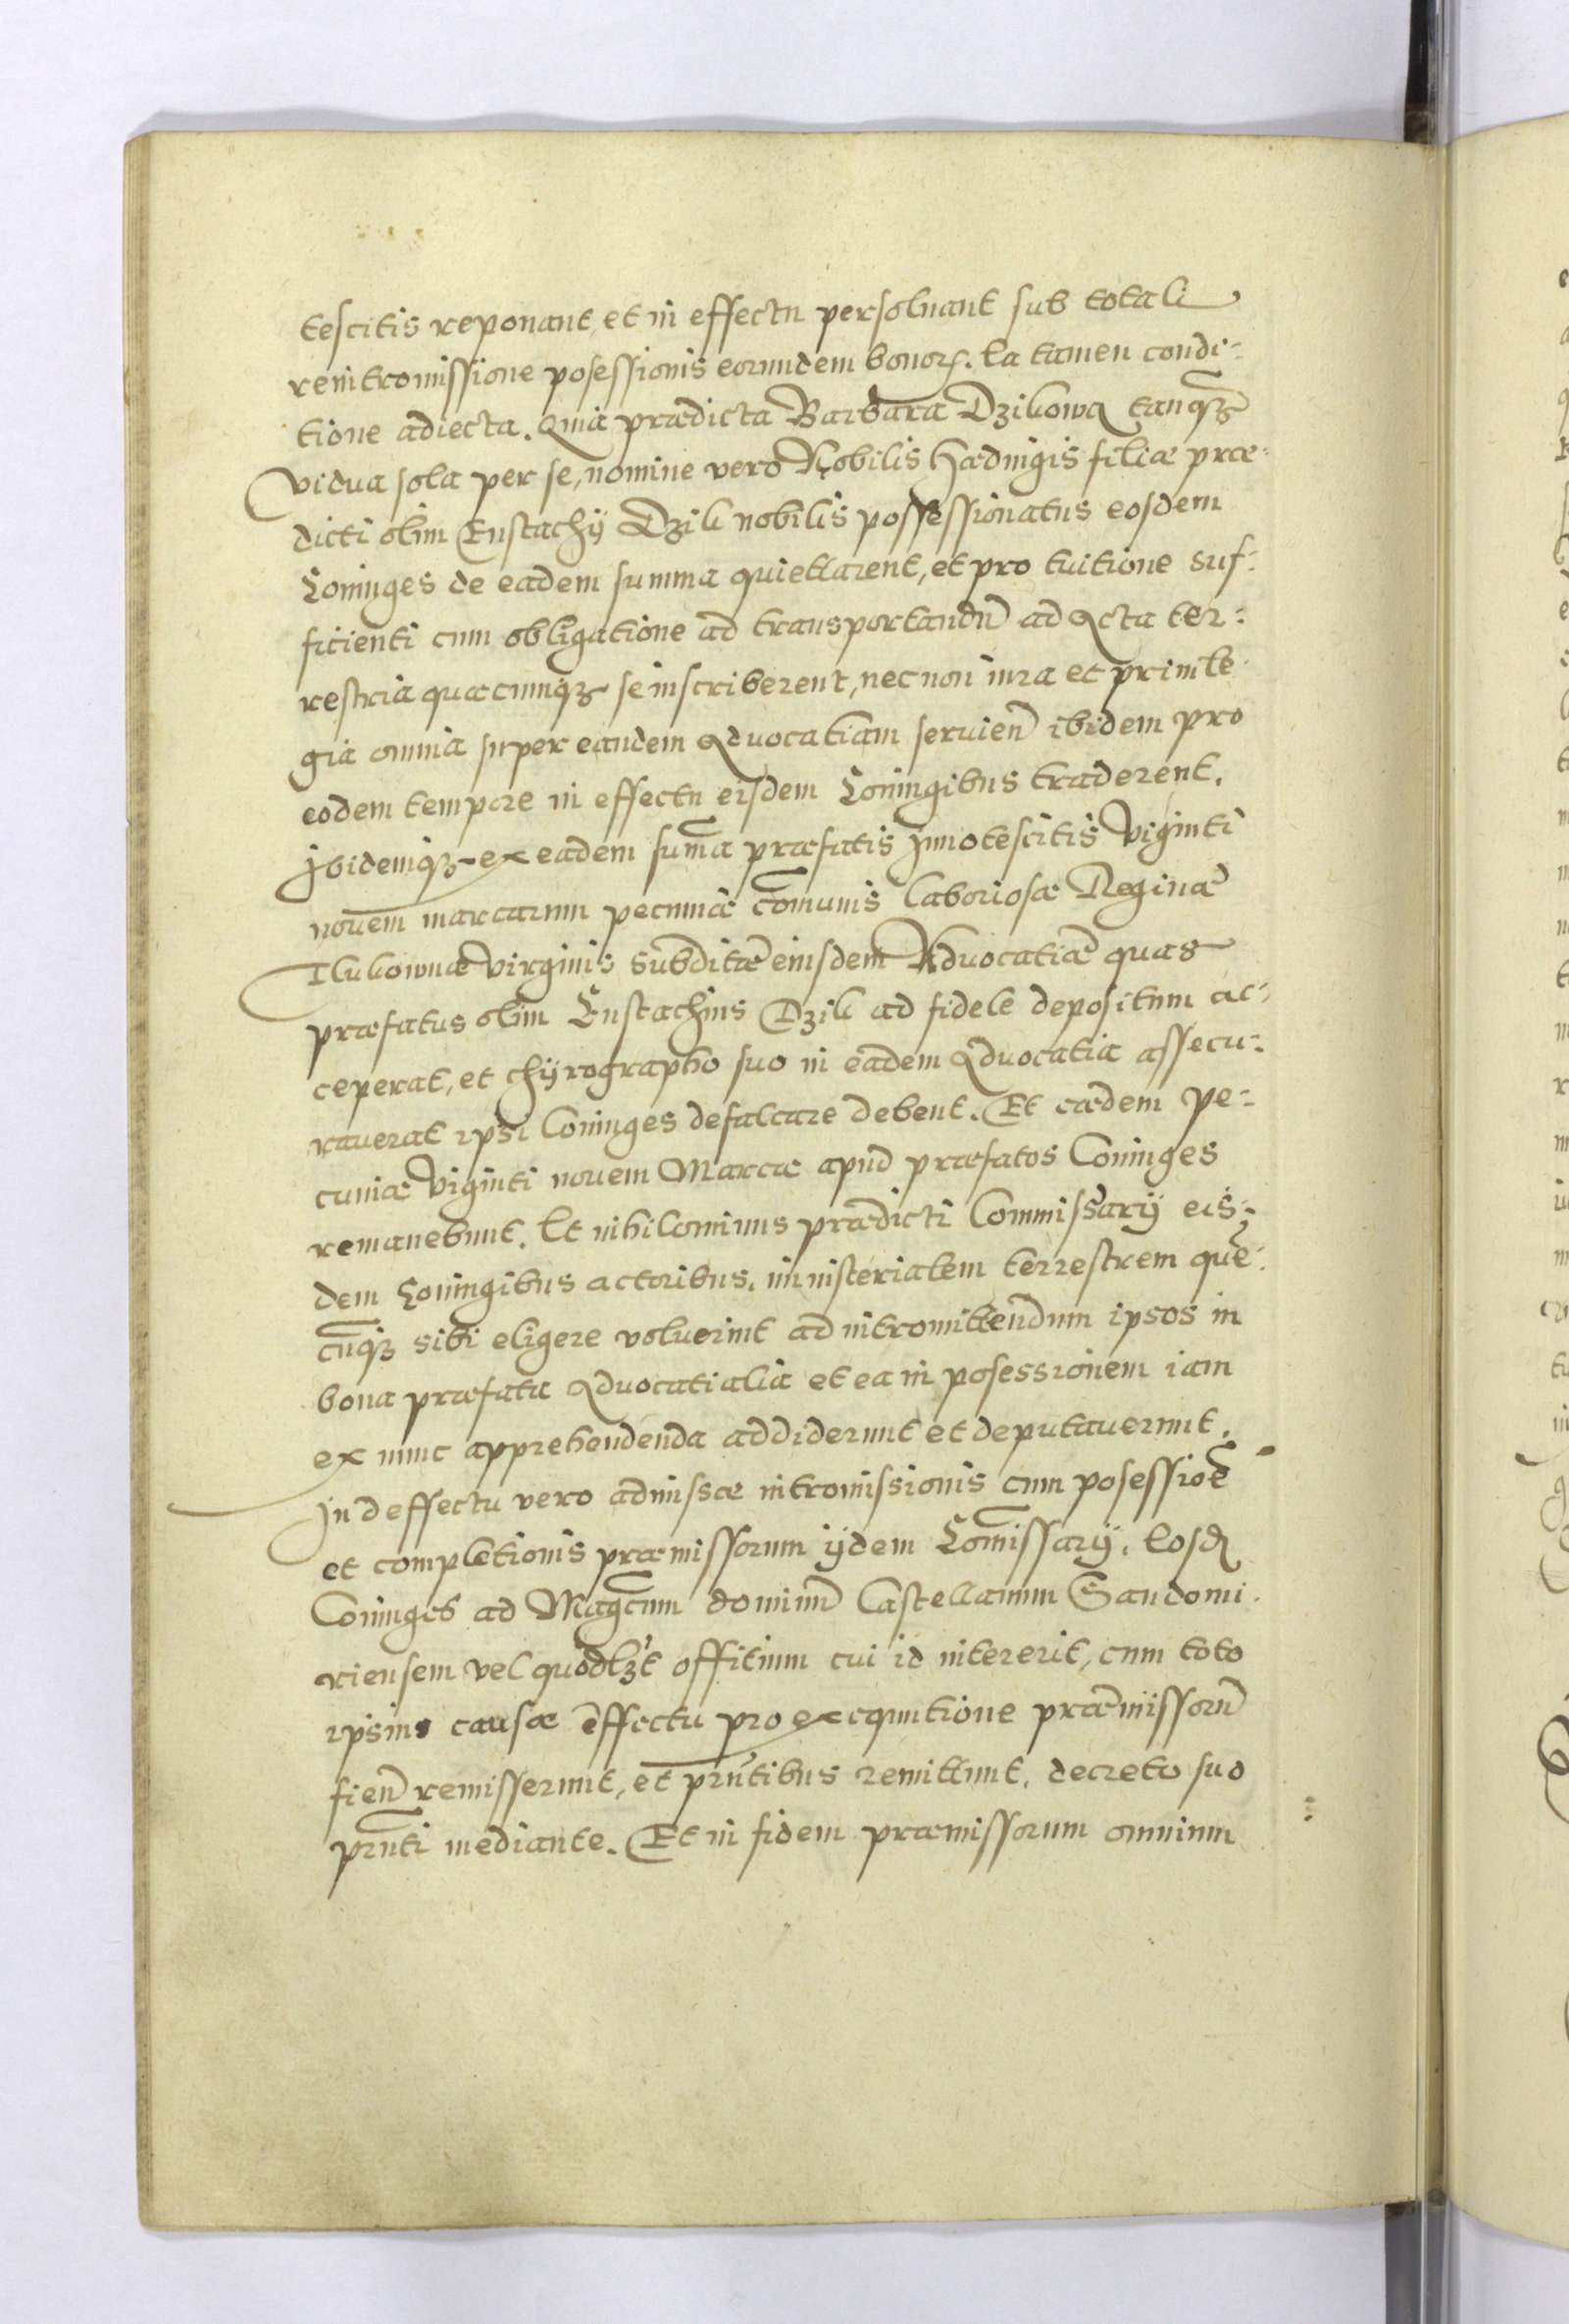 tescitis reponant, et in effectu persoluant sub totali
reintromissione posessionis eorumdem bonorꝝ. Ea tamen condi-
tione adiecta. Quia prædicta Barbara Dzikowa tanqꝫ
vidua sola per se, nomine vero Nobilis Hædnigis filiæ præ-
dicti olim Eustachÿ Dzik nobilis possessionatus eosdem
Coniuges de eadem summa quiettarent, et pro tuitione suf-
ficienti cum obligatione ad transportandũ ad Acta ter-
restria quæcunqꝫ se inscriberent, nec non iura et priuile
gia omnia super eandem Aduocatiam seruieñ ibidem pro
eodem tempore in effectu eisdem Coniugibus traderent.
Ibidemqꝫ ex eadem suma præfatis Innotescitis viginti
nouem marcarum pecuniæ comunis laboriosæ Reginæ
Ilukownæ virginis subditæ eiusdem Aduocatiæ quas
præfatus olim Eustachius Dzik ad fidele depositum ac-
ceperat, et chÿrographo suo in eadem Aduocatia assecu-
rauerat ipsi Coniuges defalcare debent. Et eædem pe-
cuniæ viginti nouem Marcæ apud præfatos Coniuges
remanebunt. Et nihilominus prædicti Commissarÿ eis-
dem Coniugibus actoribus. ministerialem terrestrem quẽ-
cũqꝫ sibi eligere voluerint ad intromittendum ipsos in
bona præfata Aduocatialia et ea in posessionem iam
ex nunc apprehendenda addiderunt et deputauerunt.
In deffectu vero admissæ intromissionis cum posessioẽ
et completionis præmissorum ÿdem Comissarÿ. Eosd
Coniuges ad Magcum dominũ Castellanum Sandomi-
riensem vel quodlꝫt offitium cui id intererit, cum toto
ipsius causæ effectu pro exequutione præmissorũ
fieñ remisserunt, et prñtibus remittunt. decreto suo
prñti mediante. Et in fidem præmissorum omnium